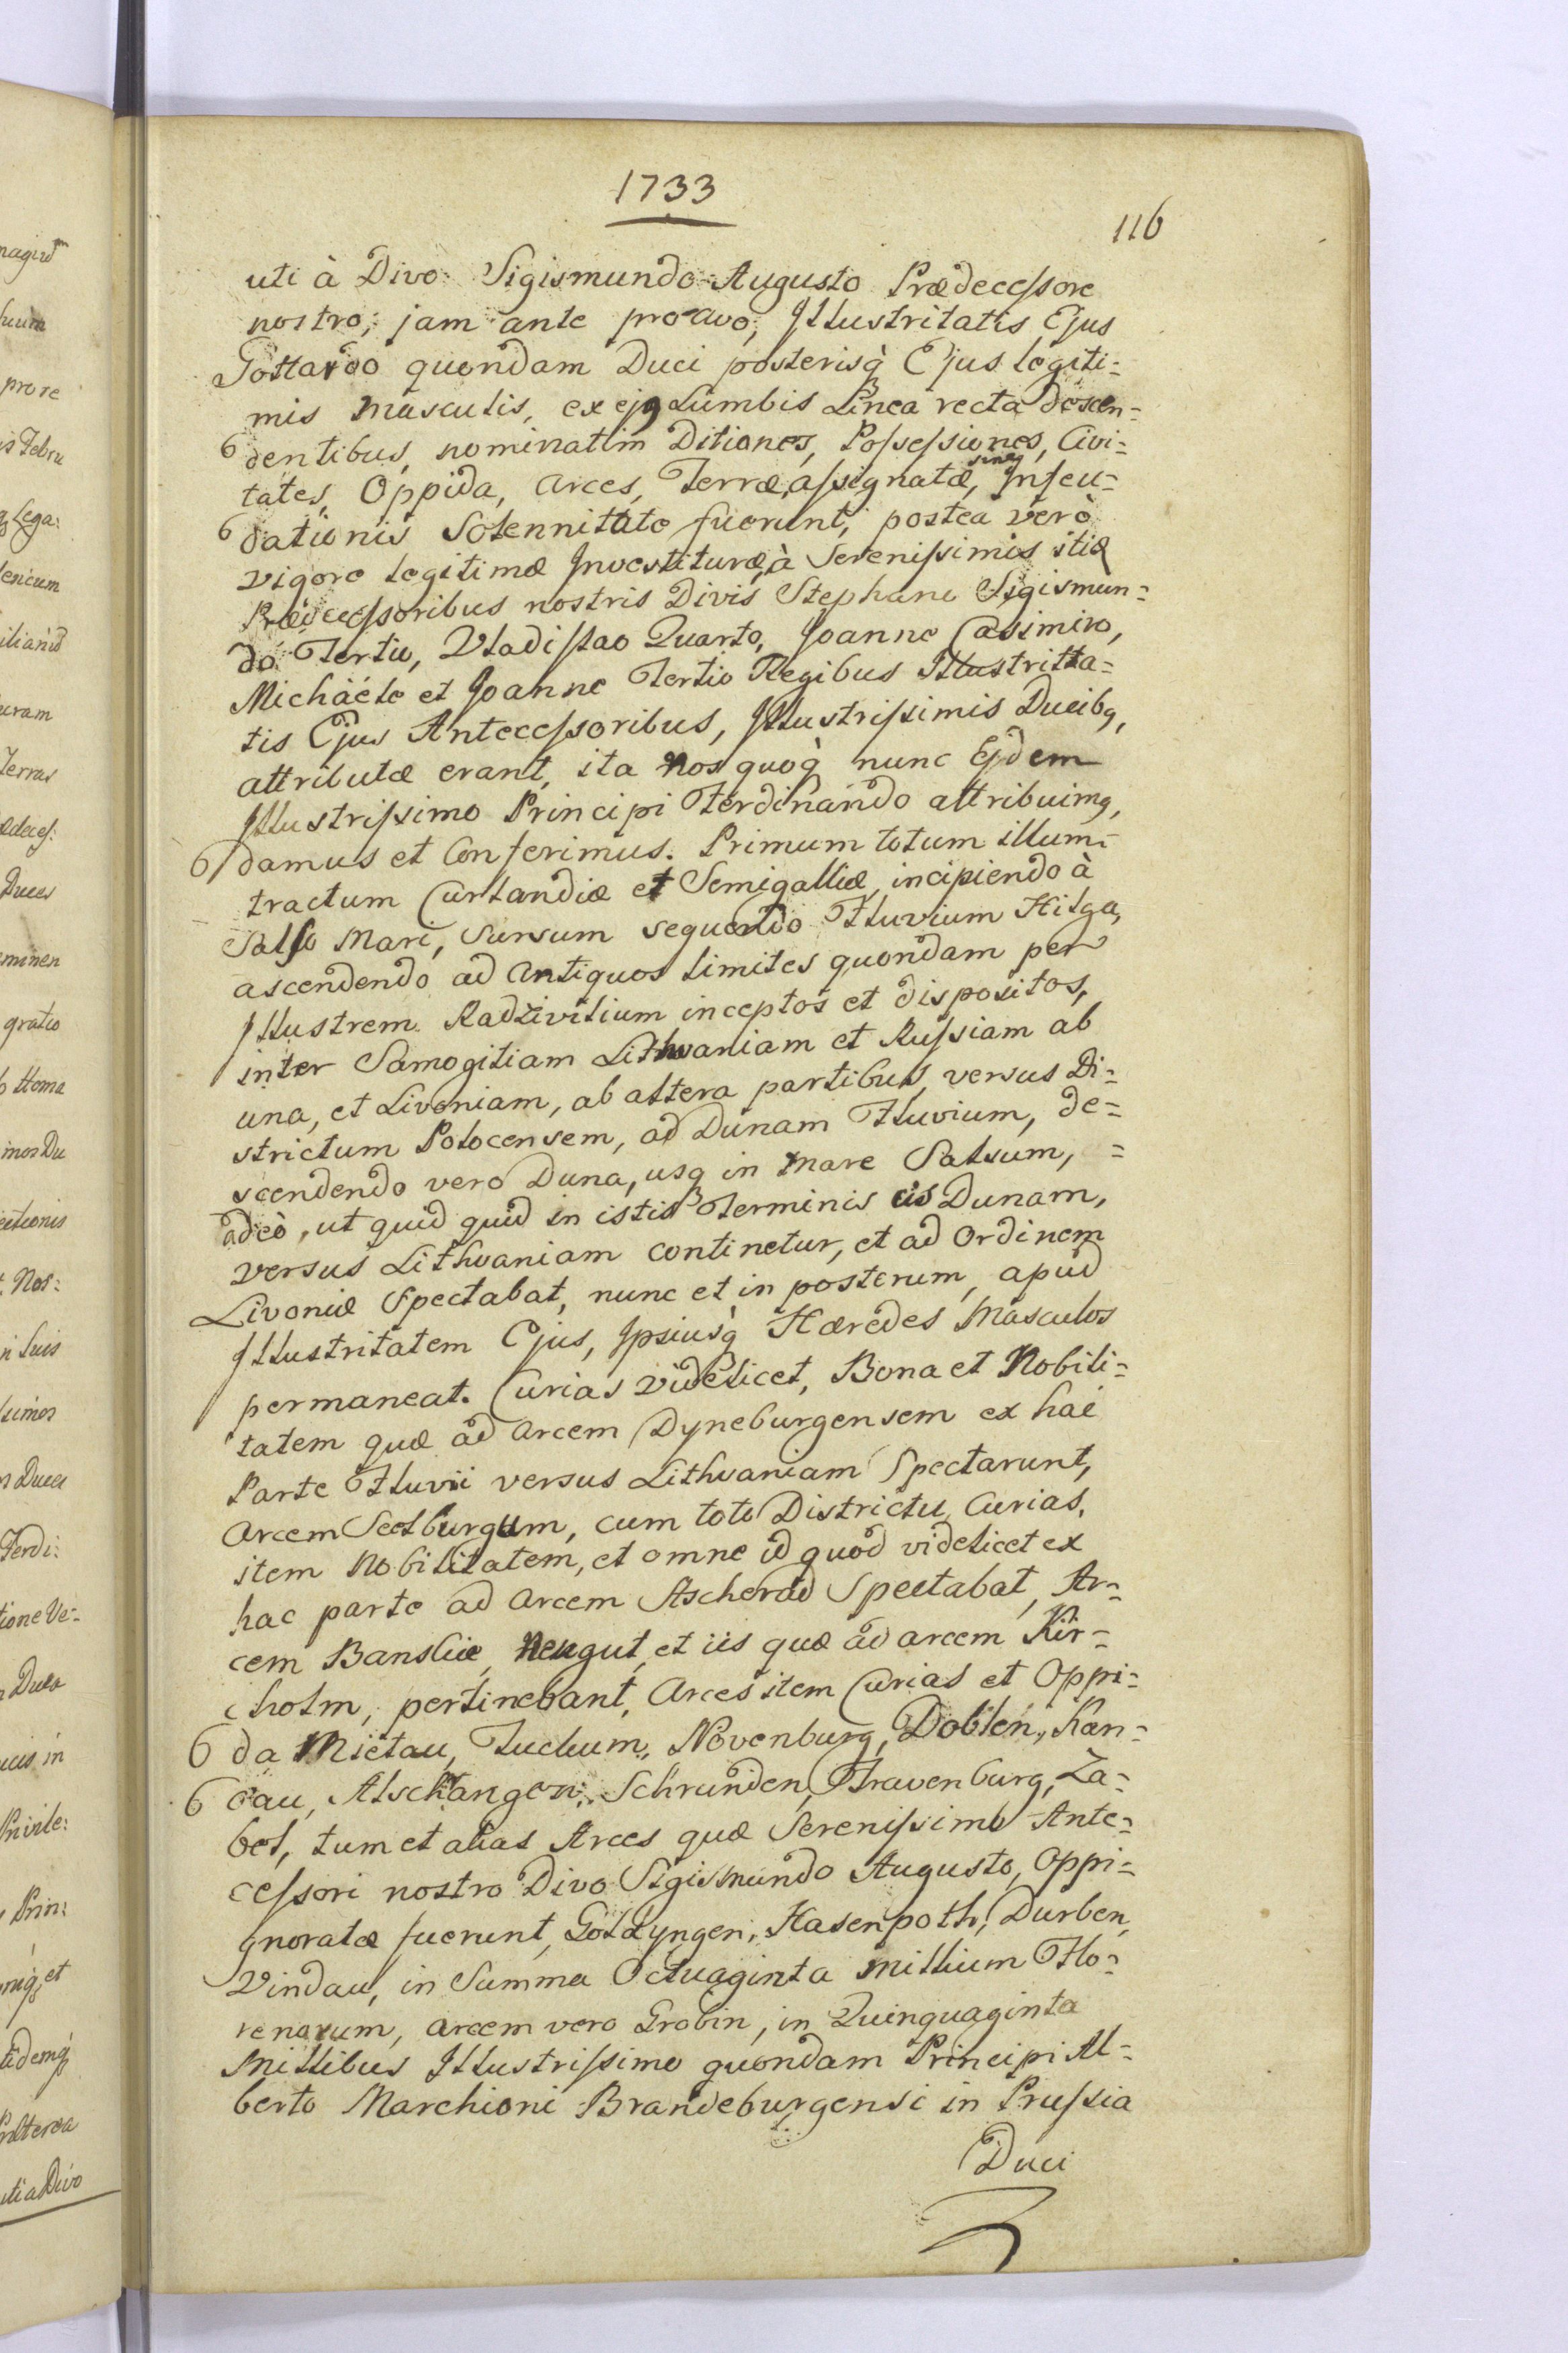 1733
116
uti à Divo Sigismundo Augusto Prædecessore
nostro, jam ante proavo, Illustritatis Ejus
Gottardo quondam Duci posterisq̀ Ejus legiti=
mis masculis, ex ejq Lumbis Linea recta descen=
dentibus, nominatim Ditiones, Possessiones, Civi=
tates, Oppida, Arces, Terræ, assignatæ, sine Infeu=
dationis Solennitate fuerunt, postea verò
vigore legitimæ Investituræ, à Serenissimis
Prædecessoribus nostris Divis Stephano Sigismun=
do Tertio, Vladislao Quarto, Joanne Casimiro,
Michaéle et Joanne Tertio Regibus Illustritta=
tis Ejus Antecessoribus, Illustrissimis Ducibq,
attributæ erant, ita Nos quoq̀ nunc Ejdem
Illustrissimo Principi Ferdinando attribuimq,
damus et Conferimus. Primum totum illum=
tractum Curlandiæ et Semigalliæ, incipiendo à
Salso Mari, Sursum sequendo Fluvium Hilga,
ascendendo ad antiquos limites quondam per
Illustrem Radzivilium inceptos et dispositos,
inter Samogitiam Lithvaniam et Russiam ab
una, et Livoniam, ab altera partibus, versus Di=
strictum Polocensem, ad Dunam Fluvium, de=
scendendo vero Duna, usq in Mare Salsum, =
adeò, ut quid quid in istis Terminis cis Dunam,
versus Lithvaniam continetur, et ad Ordinem
Livoniæ Spectabat, nunc et in posterum, apud
Illustritatem Ejus, Ipsiusq̀ Hæredes Masculos
permaneat. Curias videlicet, Bona et Nobili=
tatem quæ ad Arcem Dyneburgensem ex hac
Parte Fluvii versus Lithvaniam Spectarunt,
Arcem Seelburgum, cum toto Districtu, Curias,
item Nobilitatem, et omne id quod videlicet ex
hac parte ad Arcem Ascherad Spectabat, Ar=
cem Banskie, Neugut, et iis quæ ad arcem Kir=
cholm, pertinebant, Arces item Curias et Oppi=
da Mietau, Tuckum, Novenburg, Doblen, Kan=
dau, Alschangen, Schrunden, Fravenburg, Za=
bel, tum et alias Arces quæ Serenissimo Ante=
cessori nostro Divo Sigismundo Augusto, Oppi=
gnoratæ fuerunt, Goldyngen, Hasenpoth, Durben,
Vindau, in Summa Octuaginta millium Flo=
renorum, arcem vero Grobin, in Quinquaginta
Millibus Illustrissimo quondam Principi Al=
berto Marchioni Brandeburgensi in Prussia
Duci